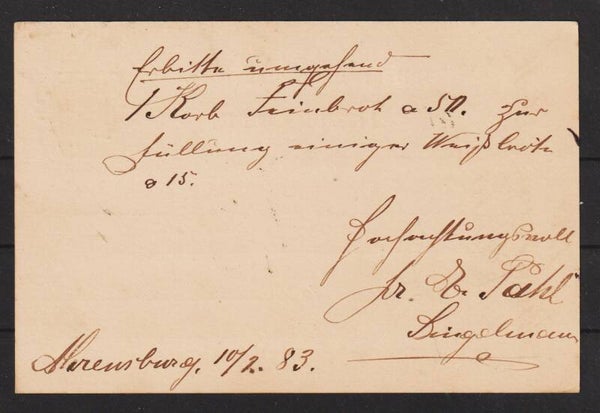 Erbitte umgehend
1 Korb Feinbrot a 50. zur
Füllung einiger Weißbrote
a 15.
Hochachtungsvoll
pr. Pahl
Ahrensburg, 10/2. 83.